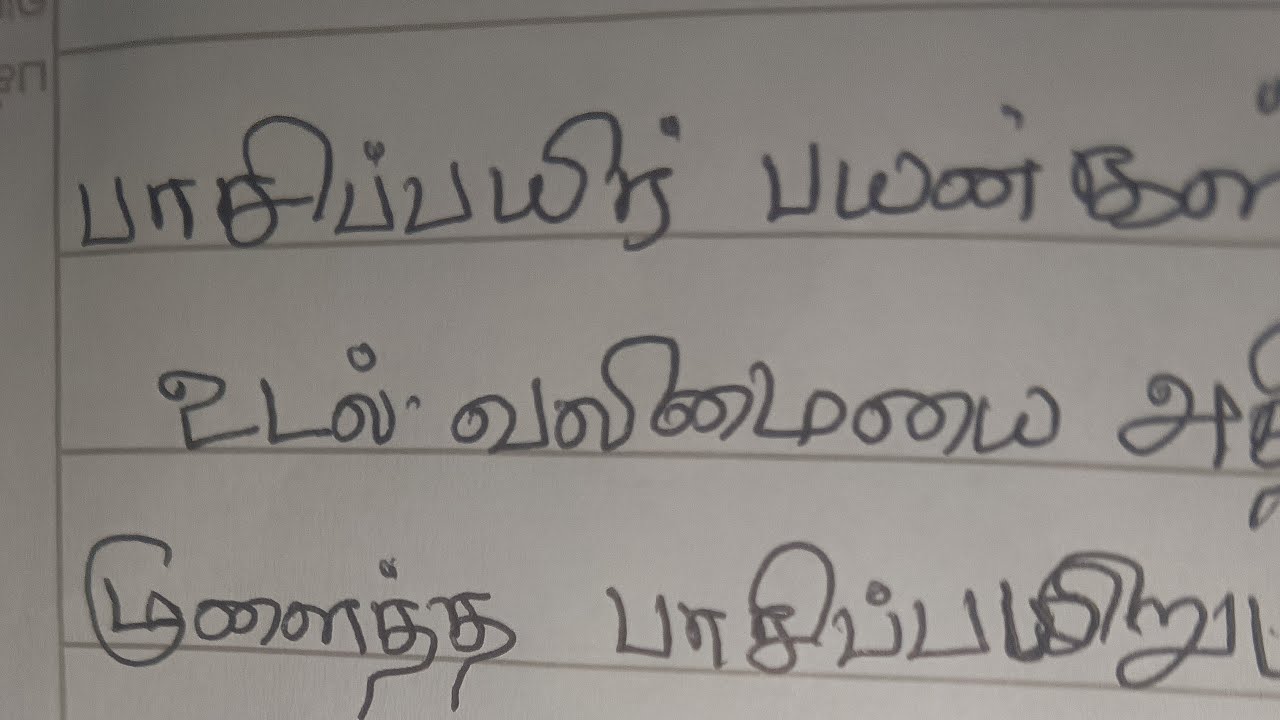 பாசிப்பயிர் பயன்கள்
உடல் வலிமையை
முளைத்த பாசிப்பயிறு